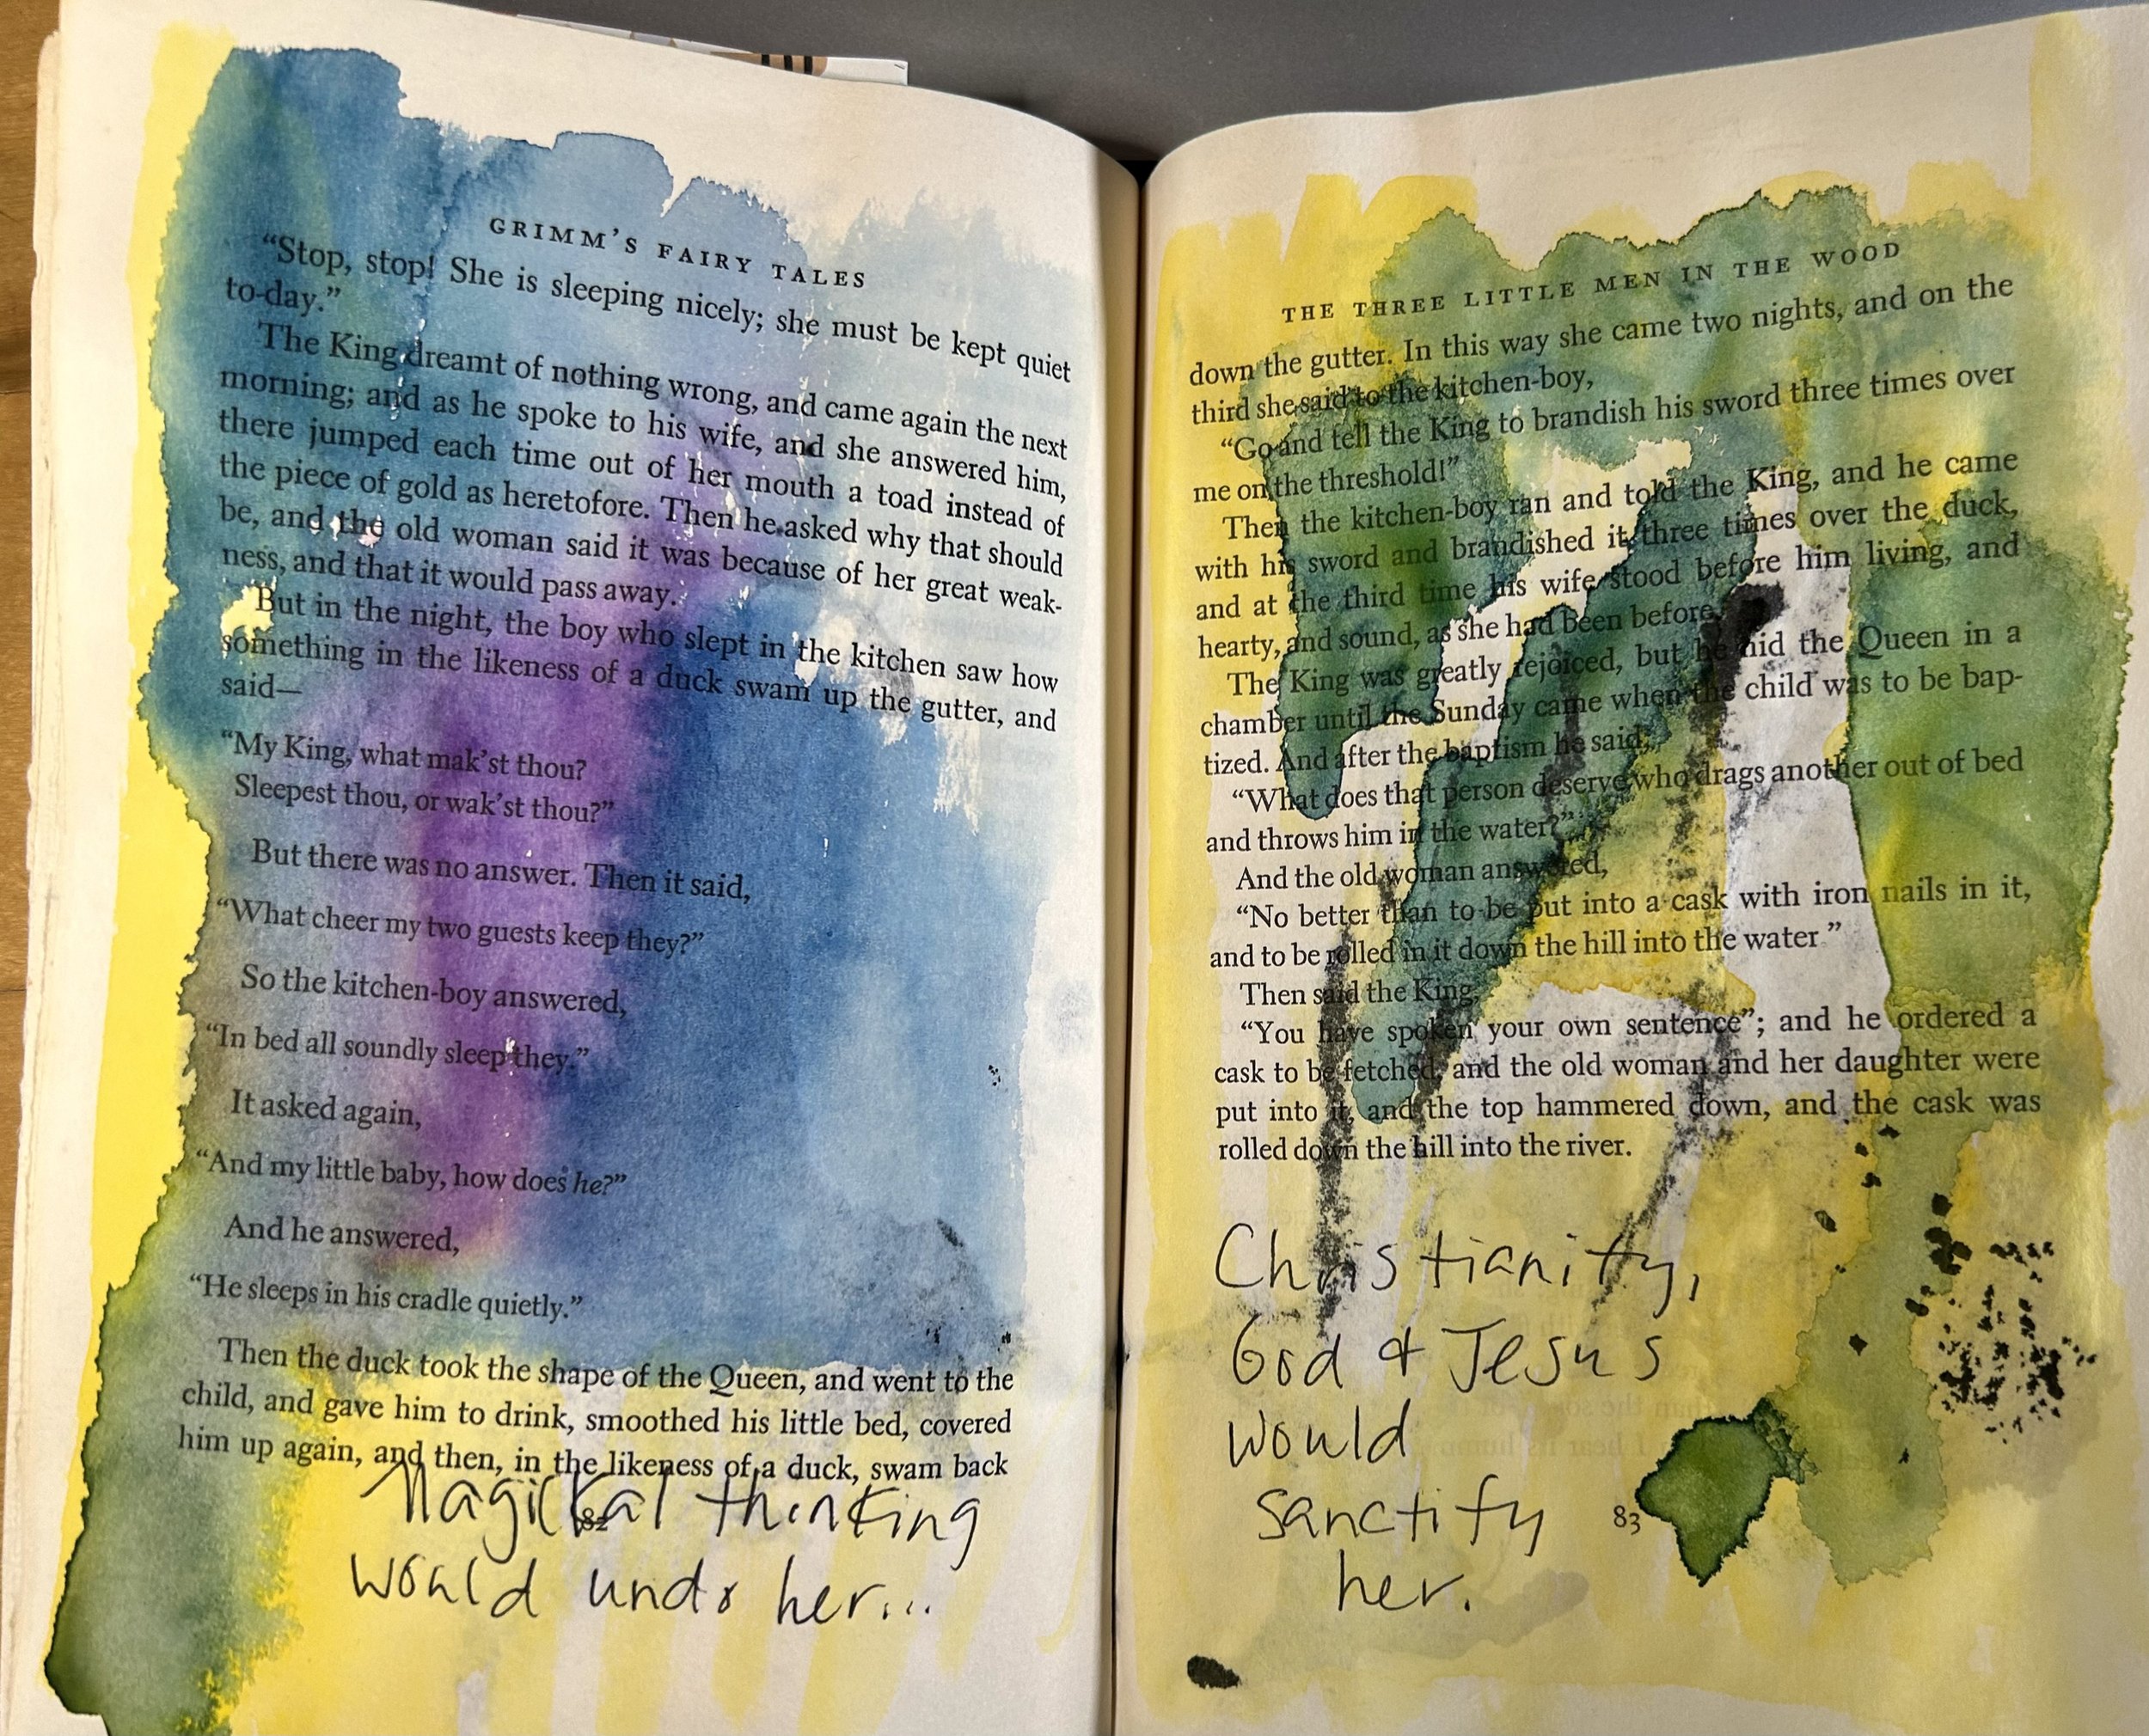 GRIMM'S FAIRY TALES
“Stop, stop! She is sleeping nicely; she must be kept quiet
to-day.”
The King dreamt of nothing wrong, and came again the next
morning; and as he spoke to his wife, and she answered him,
there jumped each time out of her mouth a toad instead of
the piece of gold as heretofore. Then he asked why that should
be, and the old woman said it was because of her great weak-
ness, and that it would pass away.
But in the night, the boy who slept in the kitchen saw how
something in the likeness of a duck swam up the gutter, and
said—
“My King, what mak'st thou?
Sleepest thou, or wak'st thou?”
But there was no answer. Then it said,
“What cheer my two guests keep they?”
So the kitchen-boy answered,
“In bed all soundly sleep they.”
It asked again,
“And my little baby, how does he?”
And he answered,
“He sleeps in his cradle quietly.”
Then the duck took the shape of the Queen, and went to the
child, and gave him to drink, smoothed his little bed, covered
him up again, and then, in the likeness of a duck, swam back
Magickal thinking
82
would undo her...
THE THREE LITTLE MEN IN THE WOOD
down the gutter. In this way she came two nights, and on the
third she said to the kitchen-boy,
“Go and tell the King to brandish his sword three times over
me on the threshold!”
Then the kitchen-boy ran and told the King, and he came
with his sword and brandished it three times over the duck,
and at the third time his wife stood before him living, and
hearty, and sound, as she had been before.
The King was greatly rejoiced, but he hid the Queen in a
chamber until the Sunday came when the child was to be bap-
tized. And after the baptism he said,
“What does that person deserve who drags another out of bed
and throws him in the water?”
And the old woman answered,
“No better than to be put into a cask with iron nails in it,
and to be rolled in it down the hill into the water”
Then said the King,
“You have spoken your own sentence”; and he ordered a
cask to be fetched, and the old woman and her daughter were
put into it, and the top hammered down, and the cask was
rolled down the hill into the river.
Christianity,
God & Jesus
would
sanctify
83
her.